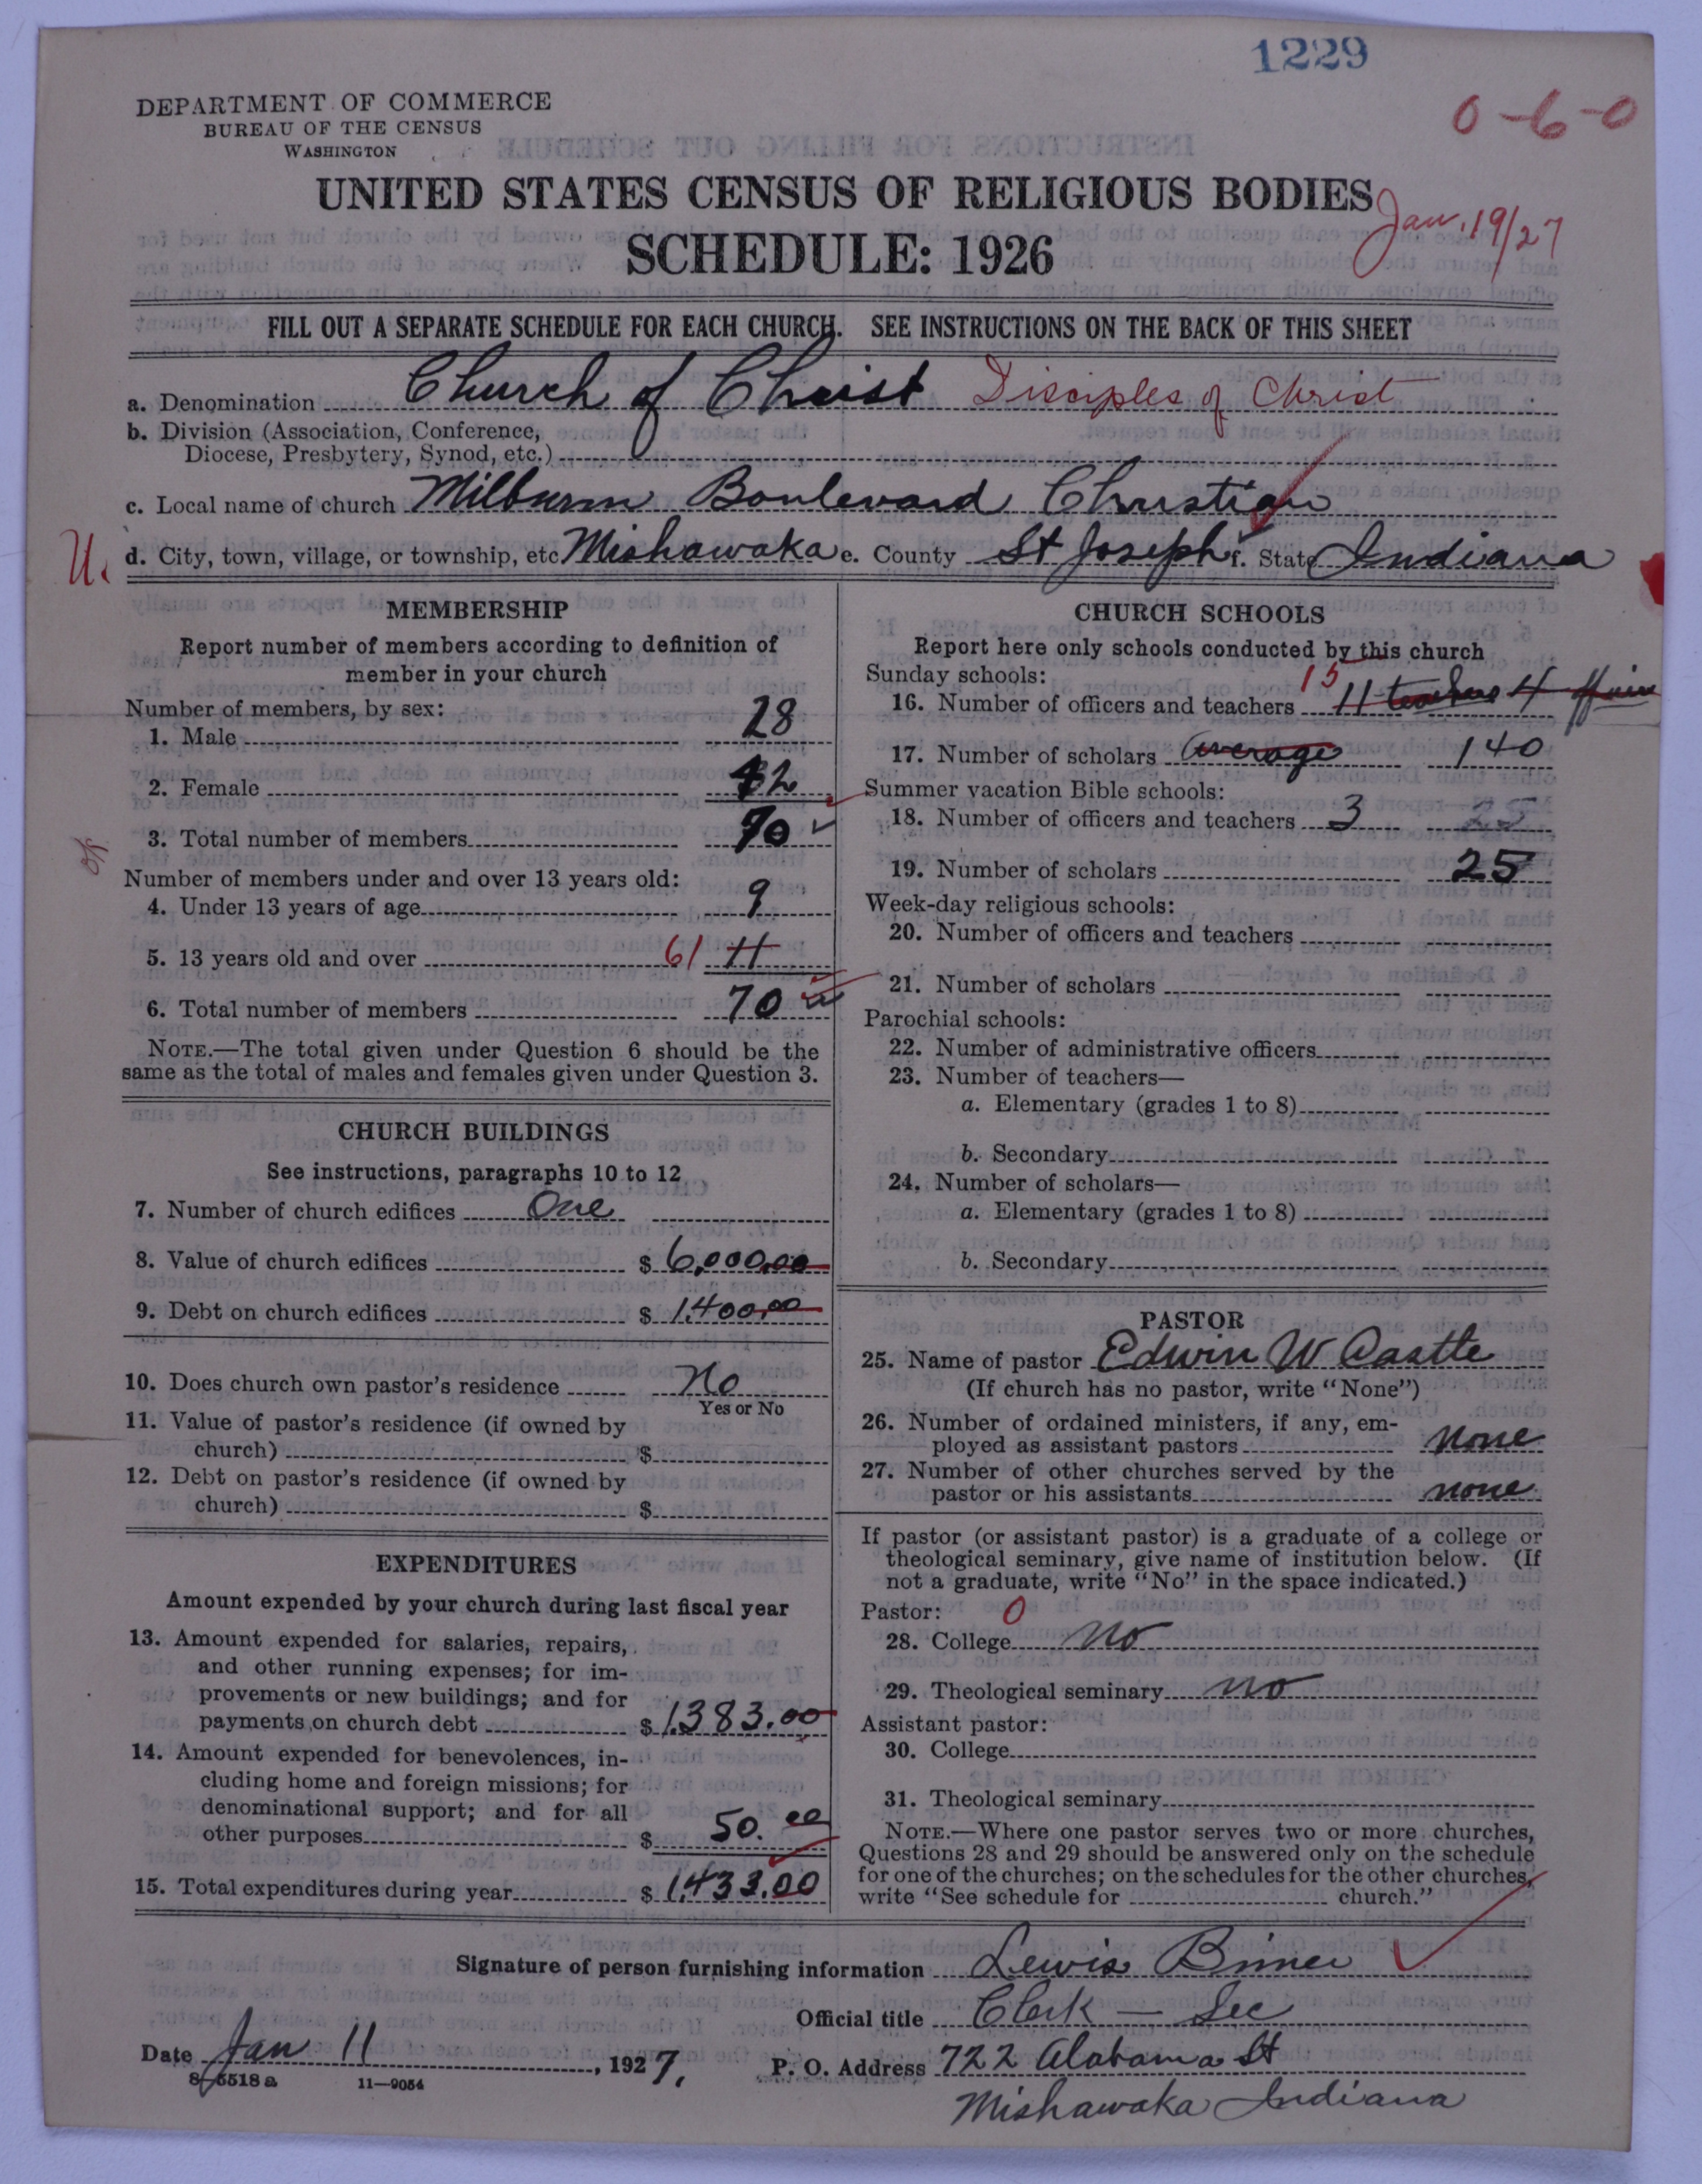 1229
0-6-0
DEPARTMENT OF COMMERCE
BUREAU OF THE CENSUS
WASHINGTON
UNITED STATES CENSUS OF RELIGIOUS BODIES
Jan. 19/27
SCHEDULE: 1926
FILL OUT A SEPARATE SCHEDULE FOR EACH CHURCH. SEE INSTRUCTIONS ON THE BACK OF THIS SHEET
a. Denomination Church of Christ Disciples of Christ
b. Division (Association, Conference,
Diocese, Presbytery, Synod, etc.)
c. Local name of church Milburn Boulevard Christian
U. d. City, town, village, or township, etc Mishawaka e. County St Joseph f. State Indiana
MEMBERSHIP
Report number of members according to definition of
member in your church
Number of members, by sex:
1. Male 28
2. Female 42
3. Total number of members 70
Number of members under and over 13 years old:
4. Under 13 years of age 9
5. 13 years old and over 61 11
6. Total number of members 70
NOTE.—The total given under Question 6 should be the
same as the total of males and females given under Question 3.
CHURCH BUILDINGS
See instructions, paragraphs 10 to 12
7. Number of church edifices One
8. Value of church edifices $ 6,000.00
9. Debt on church edifices $ 1,400.00
10. Does church own pastor's residence No
Yes or No
11. Value of pastor's residence (if owned by
church) $
12. Debt on pastor's residence (if owned by
church) $
EXPENDITURES
Amount expended by your church during last fiscal year
13. Amount expended for salaries, repairs,
and other running expenses; for im-
provements or new buildings; and for
payments on church debt $ 1,383.00
14. Amount expended for benevolences, in-
cluding home and foreign missions; for
denominational support; and for all
other purposes $ 50.00
15. Total expenditures during year $ 1,433.00
CHURCH SCHOOLS
Report here only schools conducted by this church
Sunday schools:
16. Number of officers and teachers 15 11 teachers 4
17. Number of scholars average 140
Summer vacation Bible schools:
18. Number of officers and teachers 3 25
19. Number of scholars 25
Week-day religious schools:
20. Number of officers and teachers
21. Number of scholars
Parochial schools:
22. Number of administrative officers
23. Number of teachers—
a. Elementary (grades 1 to 8)
b. Secondary
24. Number of scholars—
a. Elementary (grades 1 to 8)
b. Secondary
PASTOR
25. Name of pastor Edwin W Castle
(If church has no pastor, write "None")
26. Number of ordained ministers, if any, em-
ployed as assistant pastors none
27. Number of other churches served by the
pastor or his assistants none
If pastor (or assistant pastor) is a graduate of a college or
theological seminary, give name of institution below. (If
not a graduate, write "No" in the space indicated.)
Pastor: 0
28. College no
29. Theological seminary no
Assistant pastor:
30. College
31. Theological seminary
NOTE.—Where one pastor serves two or more churches,
Questions 28 and 29 should be answered only on the schedule
for one of the churches; on the schedules for the other churches,
write "See schedule for church."
Signature of person furnishing information Lewis
Official title Clerk — Sec
Date Jan 11, 1927. P. O. Address 722 Alabama St
8-5518a 11-9054
Mishawaka Indiana